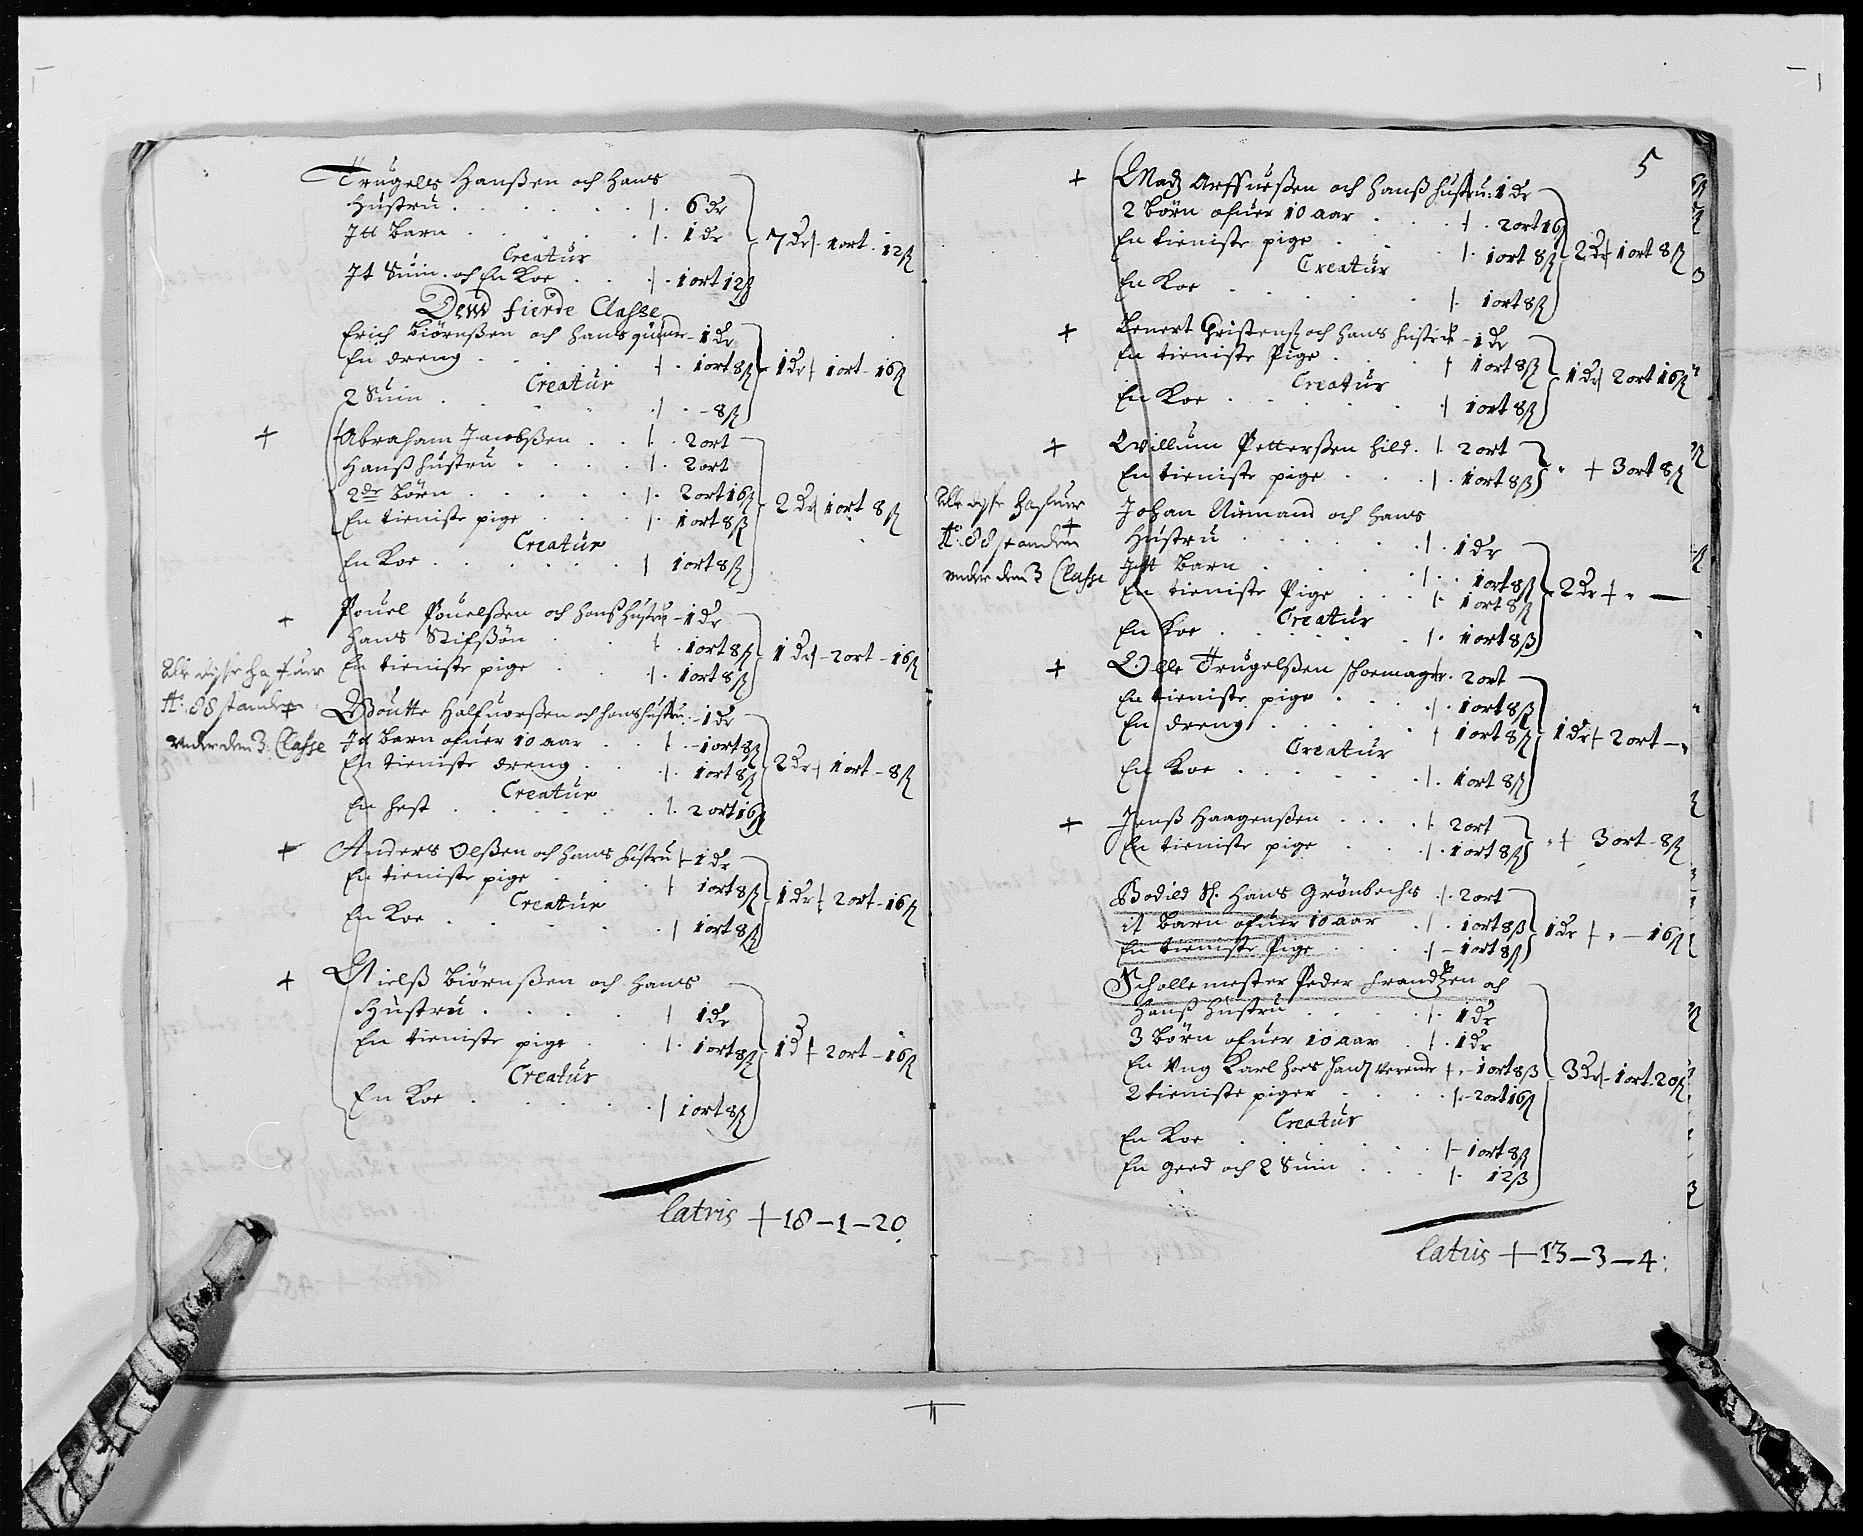 Trugels Hanßen och hans
Hustru . . . . . 6 dr
Itt Barn . . . . . 1 dr
7 Dr - 1 ort - 12 ß
Creatur
It Suin och En Koe . . 1 ort 12 ß
Dend fierde Classe
Erich Biörnßen och hans quinde - 1 dr
En dreng . . . . 1 ort 8 ß
1 dr - 1 ort - 16 ß
Creatur
2 Suin . . . . - 8 ß
+ Abraham Jacobßen . . 2 ort
Hanß hustru . . . . 2 ort
2de Börn . . . . . 2 ort 16 ß
2 Dr 1 ort 8 ß
En tieniste pige . . . 1 ort 8 ß
Creatur
En Koe . . . . . 1 ort 8 ß
+ Pouel Pouelßen och hanß hustru - 1 dr
Hans Stifsön . . 1 ort 8 ß
1 dr - 2 ort - 16 ß
En tieniste pige . . 1 ort 8 ß
Alle disse hafuer
Ao: 88 standen
under dem 3: Classe
+ Boutte Halfuorßen och hans hustru - 1 dr
It barn ofuer 10 aar . . - 1 ort 8 ß
2 dr - 1 ort - 8 ß
En tieniste dreng . . 1 ort 8 ß
Creatur
En hest . . . . . 2 ort 16 ß
+ Anders Olßen och hans hustru - 1 dr
En tieniste pige . . . 1 ort 8 ß
1 dr - 2 ort - 16 ß
Creatur
En Koe . . . . . 1 ort 8 ß
+ Nielß Biörnßen och hans
Hustru . . . . 1 dr
En tieniste pige . . 1 ort 8 ß
1 d - 2 ort - 16 ß
Creatur
En Koe . . . . . 1 ort 8 ß
Latris + 18 - 1 - 20
5
+ Madz Arffueßen och hanß hustru: 1 dr
2 börn ofuer 10 aar . . . 2 ort 16
En tieniste pige . . . 1 ort 8 ß
2 Dr 1 ort 8 ß
Creatur
En Koe . . . . . 1 ort 8 ß
+ Lenert Christenß och hans hustru - 1 dr
En tieniste Pige . . . 1 ort 8 ß
1 dr 2 ort 16 ß
Creatur
En Koe . . . . . 1 ort 8 ß
+ Willum Petterßen hild . 2 ort
En tieniste pige . . . 1 ort 8 ß
+ 3 ort 8 ß
Alle disse hafuer
Ao: 88 standen
under dem 3 Classe
+ Johan Niemand och hans
Hustru . . . . . 1 dr
Itt Barn . . . . . 1 ort 8 ß
2 dr
En tieniste Pige . . . 1 ort 8 ß
Creatur
En Koe . . . . . 1 ort 8 ß
+ Olle Trugelßen skoemager . 2 ort
En tieniste pige . . . 1 ort 8 ß
En dreng . . . . . 1 ort 8 ß
1 dr - 2 ort -
Creatur
En Koe . . . . . 1 ort 8 ß
+ Jenß Haagenßen . . . 2 ort
En tieniste pige . . . 1 ort 8 ß
+ 3 ort - 8 ß
Bodild Sl. Hans Grönbechs . 2 ort
it barn ofuer 10 aar . . 1 ort 8 ß
1 dr - 16 ß
En tieniste Pige . . . - 1 ort 8 ß
Schollemester Peder Frandtzen och
Hanß hustru . . . . 1 dr
3 Börn ofuer 10 aar . . 1 dr
En ung Karl hoes hand verende - 1 ort 8 ß
3 Dr - 1 ort - 20 ß
2 tieniste piger . . . - 2 ort 16 ß
Creatur
En Koe . . . . . - 1 ort 8 ß
En geed och 2 Suin . . . 12 ß
Latus + 13 - 3 - 4: